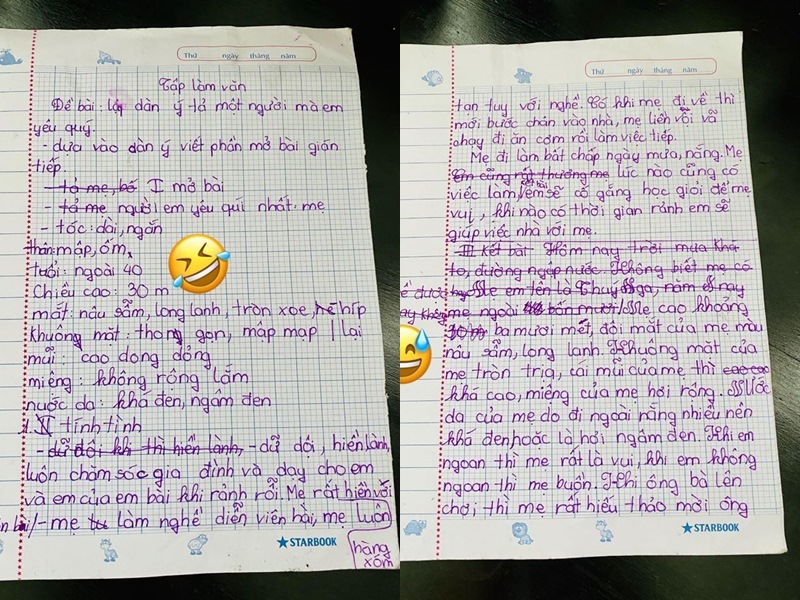 Thứ ngày tháng năm
Tập làm văn
Đề bài: lập dàn ý tả một người mà em
yêu quý.
- dựa vào dàn ý viết phần mở bài gián
tiếp.
- tả mẹ, bố I mở bài
- tả mẹ người em yêu quí nhất: mẹ
- tóc: dài, ngắn
thân: mập, ốm,
tuổi: ngoài 40
Chiều cao: 30 m
mắt: nâu sẫm, long lanh, tròn xoe, híp
khuông mặt: thong gọn, mập mạp | lại
mũi: cao dong dỏng
miệng: không rộng lắm
nước da: khá đen, ngâm đen
II tính tình
- dữ dôi khi thì hiền lành, - dữ dôi, hiền lành,
luôn chăm sóc gia đình và dạy cho em
và em của em bài khi rảnh rỗi. Mẹ rất hiền với
- mẹ làm nghề diễn viên hài, mẹ luôn
hàng
xóm
STARBOOK
Thứ ngày tháng năm
tận tuy với nghề. Có khi mẹ đi về thì
mới bước chân vào nhà, mẹ liền vội vã
chạy đi ăn cơm rồi làm việc tiếp.
Mẹ đi làm bất chấp ngày mưa, nắng. Mẹ
Em cũng rất thương mẹ lúc nào cũng có
việc làm, em sẽ cố gắng học giỏi để mẹ
vui, khi nào có thời gian rảnh em sẽ
giúp việc nhà với mẹ.
III Kết bài Hôm nay trời mưa khá
to, đường ngập nước. Không biết mẹ có
về được hay không Mẹ em tên là Thuý Nga, năm nay
mẹ ngoài bốn mươi Mẹ cao khoảng
30m ba mươi mét, đôi mắt của mẹ màu
nâu sẫm, long lanh. Khuông mặt của
mẹ tròn trịa, cái mũi của mẹ thì cao cao
khá cao, miệng của mẹ hơi rộng. Nước
da của mẹ do đi ngoài nắng nhiều nên
khá đen hoặc là hơi ngâm đen. Khi em
ngoan thì mẹ rất là vui, khi em không
ngoan thì mẹ buồn. Khi ông bà lên
chơi thì mẹ rất hiếu thảo mời ông
STARBOOK